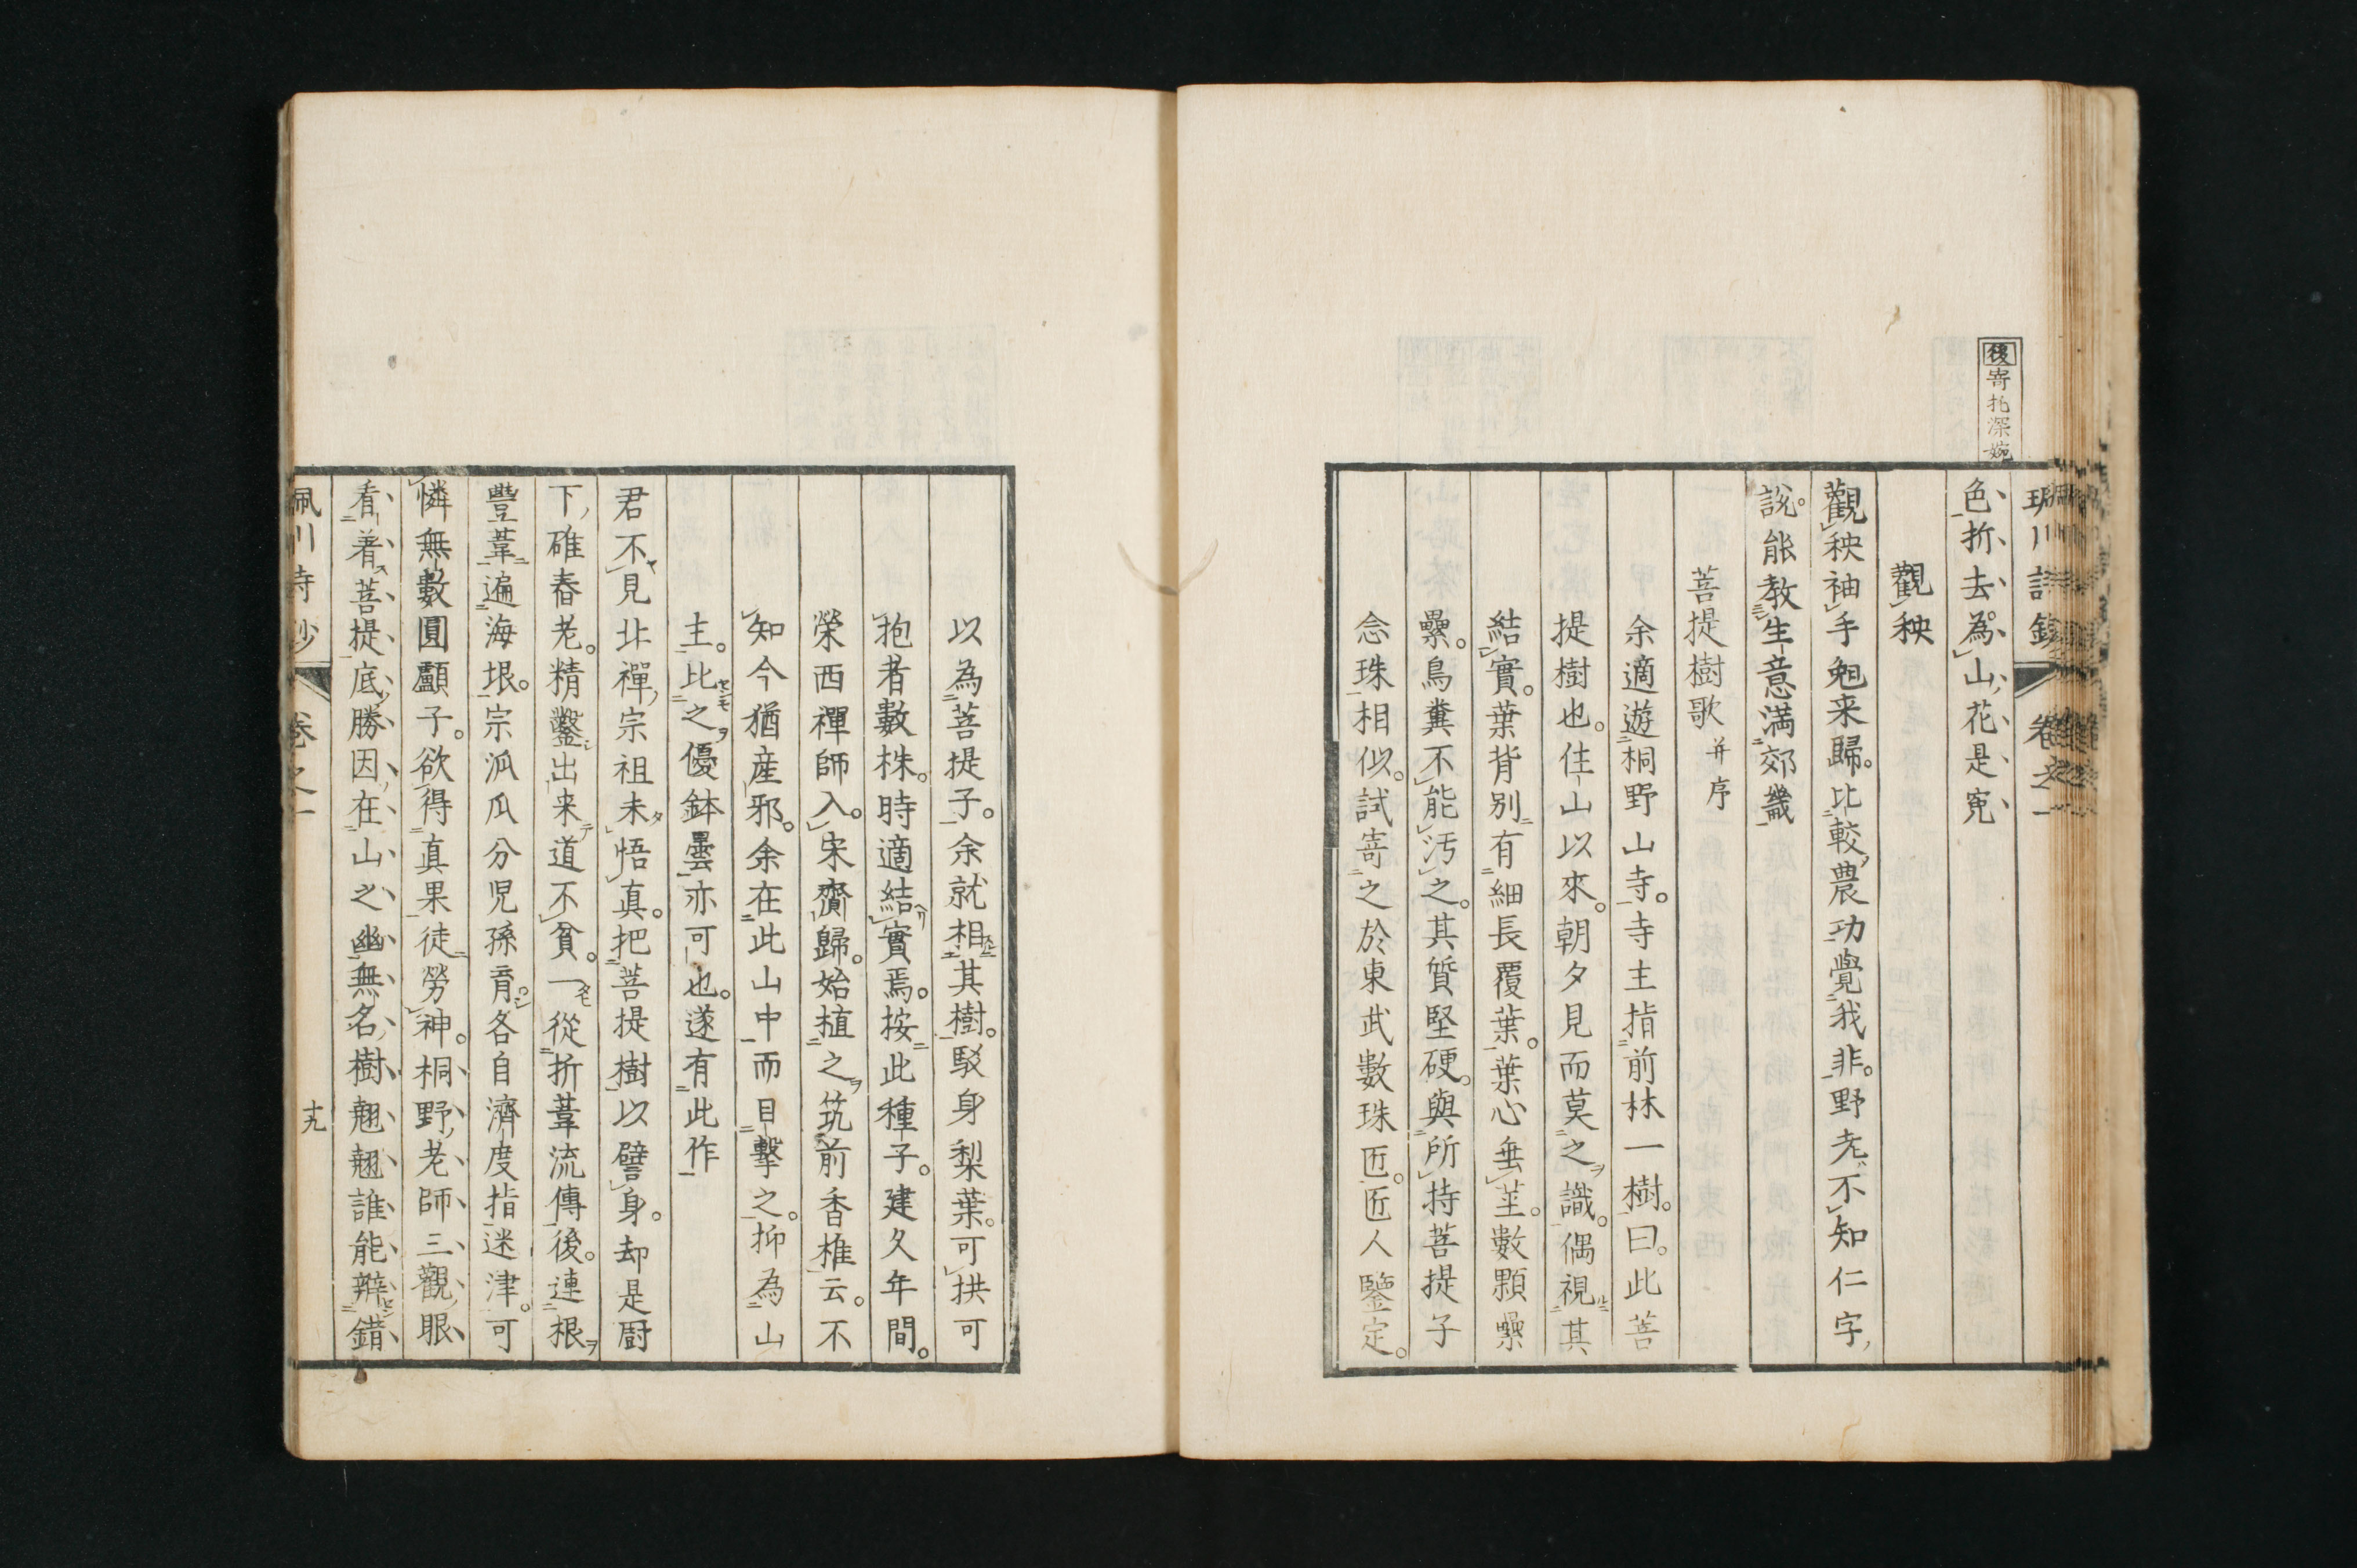 後寄托深婉
色折去為山花是寃
觀秧
觀秧袖手兜来歸比較農功覺我非野老不知仁字
說能教生意満郊畿
菩提樹歌并序
余適遊桐野山寺寺主指前林一樹曰此菩
提樹也住山以來朝夕見而莫之識偶視其
結實葉背別有細長覆葉葉心垂莖數顆纍
纍鳥糞不能汚之其質堅硬與所持菩提子
念珠相似試寄之於東武數珠匠匠人鑒定
以為菩提子余就相其樹駁身梨葉可拱可
抱者數株時適結實焉按此種子建久年間
榮西禪師入宋齎歸始植之筑前香椎云不
知今猶産邪余在此山中而目擊之抑為山
主比之優鉢曇亦可也遂有此作
君不見北禪宗祖未悟真把菩提樹以譬身却是厨
下碓舂老精鑿出来道不貧一從折葦流傳後連根
豐葦遍海垠宗派瓜分児孫育各自濟度指迷津可
憐無數圓顱子欲得真果徒勞神桐野老師三觀眼
看着菩提底勝因在山之幽無名樹翹翹誰能辨錯
佩川詩鈔 卷之一 十九